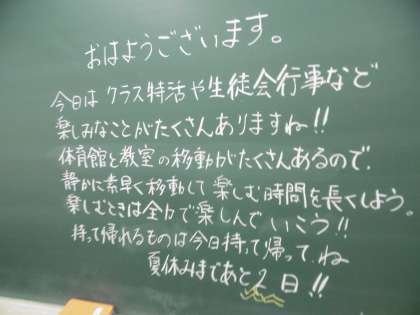 おはようございます。
今日は クラス特活や生徒会行事など
楽しみなことがたくさんありますね!!
体育館と教室の移動がたくさんあるので、
静かに素早く移動して 楽しむ時間を長くしよう。
楽しむときは全力で楽しんで いこう!!
持って帰れるものは今日持って帰ってね
夏休みまであと2日!!